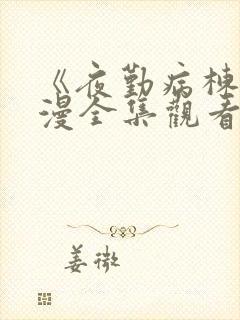 《夜勤病棟
漫全集觀看
姜微